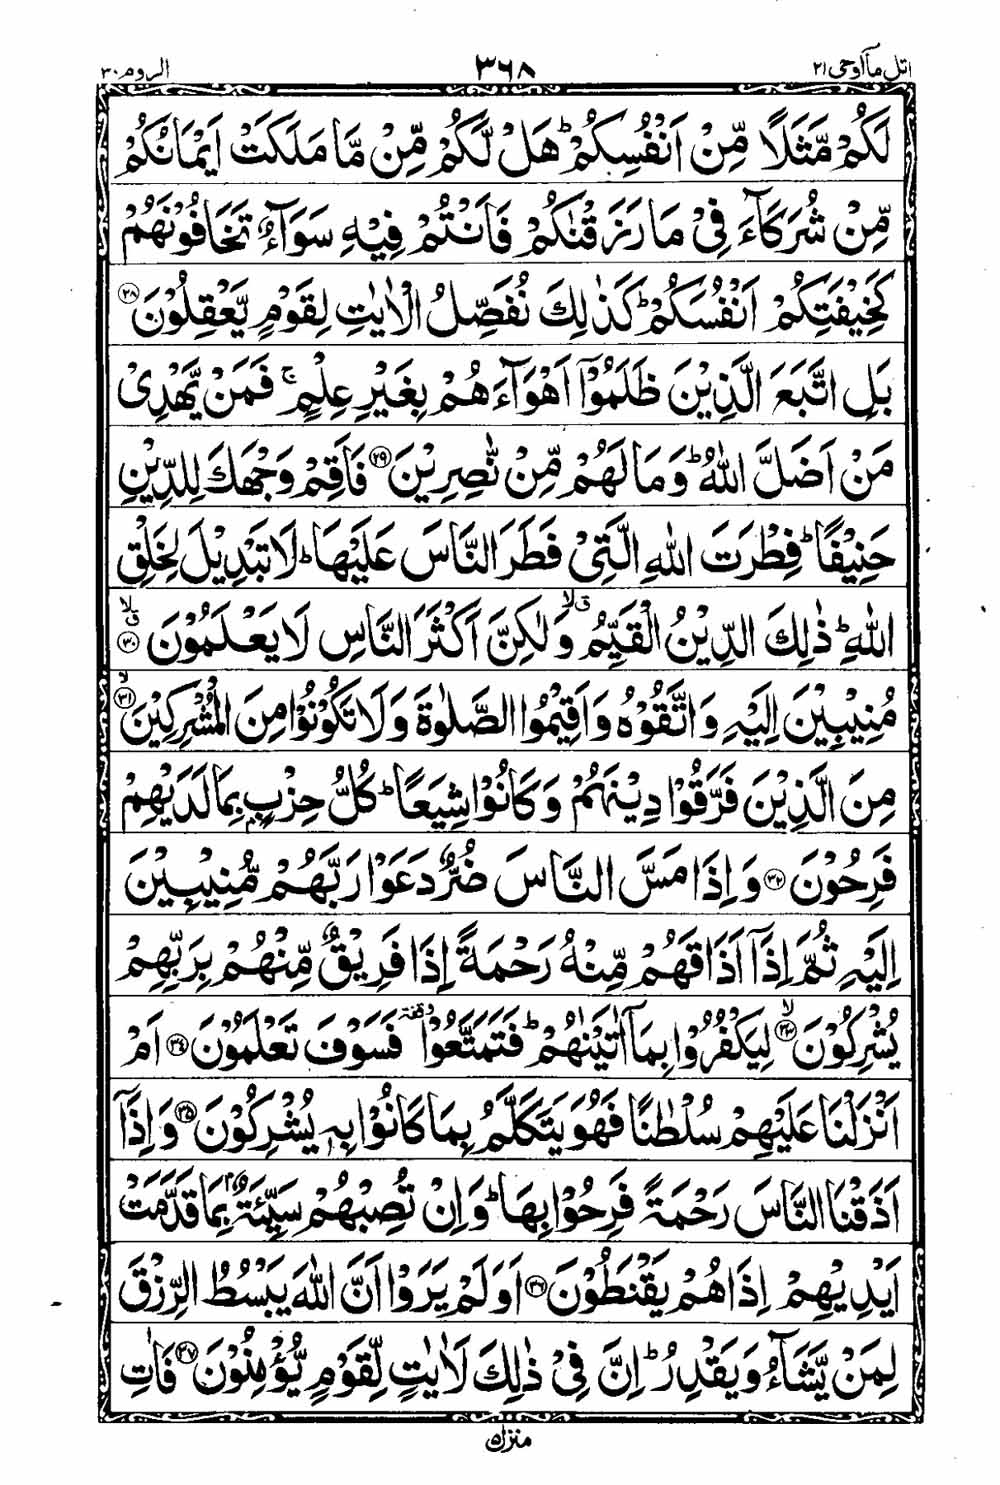 اتل ماۤاوحی ۲۱ ۳۶۸ الروم ۳۰
لَكُمْ مَّثَلًا مِّنْ اَنْفُسِكُمْ ؕ هَلْ لَّكُمْ مِّنْ مَّا مَلَكَتْ اَيْمَانُكُمْ
مِّنْ شُرَكَآءَ فِىْ مَا رَزَقْنٰكُمْ فَاَنْتُمْ فِيْهِ سَوَآءٌ تَخَافُوْنَهُمْ
كَخِيْفَتِكُمْ اَنْفُسَكُمْ ؕ كَذٰلِكَ نُفَصِّلُ الْاٰيٰتِ لِقَوْمٍ يَّعْقِلُوْنَ ۲۸
بَلِ اتَّبَعَ الَّذِيْنَ ظَلَمُوْۤا اَهْوَآءَهُمْ بِغَيْرِ عِلْمٍ ۚ فَمَنْ يَّهْدِىْ
مَنْ اَضَلَّ اللّٰهُ ؕ وَمَا لَهُمْ مِّنْ نّٰصِرِيْنَ ۲۹ فَاَقِمْ وَجْهَكَ لِلدِّيْنِ
حَنِيْفًا ؕ فِطْرَتَ اللّٰهِ الَّتِىْ فَطَرَ النَّاسَ عَلَيْهَا ؕ لَا تَبْدِيْلَ لِخَلْقِ
اللّٰهِ ؕ ذٰلِكَ الدِّيْنُ الْقَيِّمُ ۙق وَلٰكِنَّ اَكْثَرَ النَّاسِ لَا يَعْلَمُوْنَ ۳۰ ۙق
مُنِيْبِيْنَ اِلَيْهِ وَاتَّقُوْهُ وَاَقِيْمُوا الصَّلٰوةَ وَلَا تَكُوْنُوْا مِنَ الْمُشْرِكِيْنَ ۳۱ ۙ
مِنَ الَّذِيْنَ فَرَّقُوْا دِيْنَهُمْ وَكَانُوْا شِيَعًا ؕ كُلُّ حِزْبٍۭ بِمَا لَدَيْهِمْ
فَرِحُوْنَ ۳۲ وَاِذَا مَسَّ النَّاسَ ضُرٌّ دَعَوْا رَبَّهُمْ مُّنِيْبِيْنَ
اِلَيْهِ ثُمَّ اِذَاۤ اَذَاقَهُمْ مِّنْهُ رَحْمَةً اِذَا فَرِيْقٌ مِّنْهُمْ بِرَبِّهِمْ
يُشْرِكُوْنَ ۳۳ ۙ لِيَكْفُرُوْا بِمَاۤ اٰتَيْنٰهُمْ ؕ فَتَمَتَّعُوْا وقفة فَسَوْفَ تَعْلَمُوْنَ ۳۴ اَمْ
اَنْزَلْنَا عَلَيْهِمْ سُلْطٰنًا فَهُوَ يَتَكَلَّمُ بِمَا كَانُوْا بِهٖ يُشْرِكُوْنَ ۳۵ وَاِذَاۤ
اَذَقْنَا النَّاسَ رَحْمَةً فَرِحُوْا بِهَا ؕ وَاِنْ تُصِبْهُمْ سَيِّئَةٌۢ بِمَا قَدَّمَتْ
اَيْدِيْهِمْ اِذَا هُمْ يَقْنَطُوْنَ ۳۶ اَوَلَمْ يَرَوْا اَنَّ اللّٰهَ يَبْسُطُ الرِّزْقَ
لِمَنْ يَّشَآءُ وَيَقْدِرُ ؕ اِنَّ فِىْ ذٰلِكَ لَاٰيٰتٍ لِّقَوْمٍ يُّؤْمِنُوْنَ ۳۷ فَاٰتِ
منزل ۵